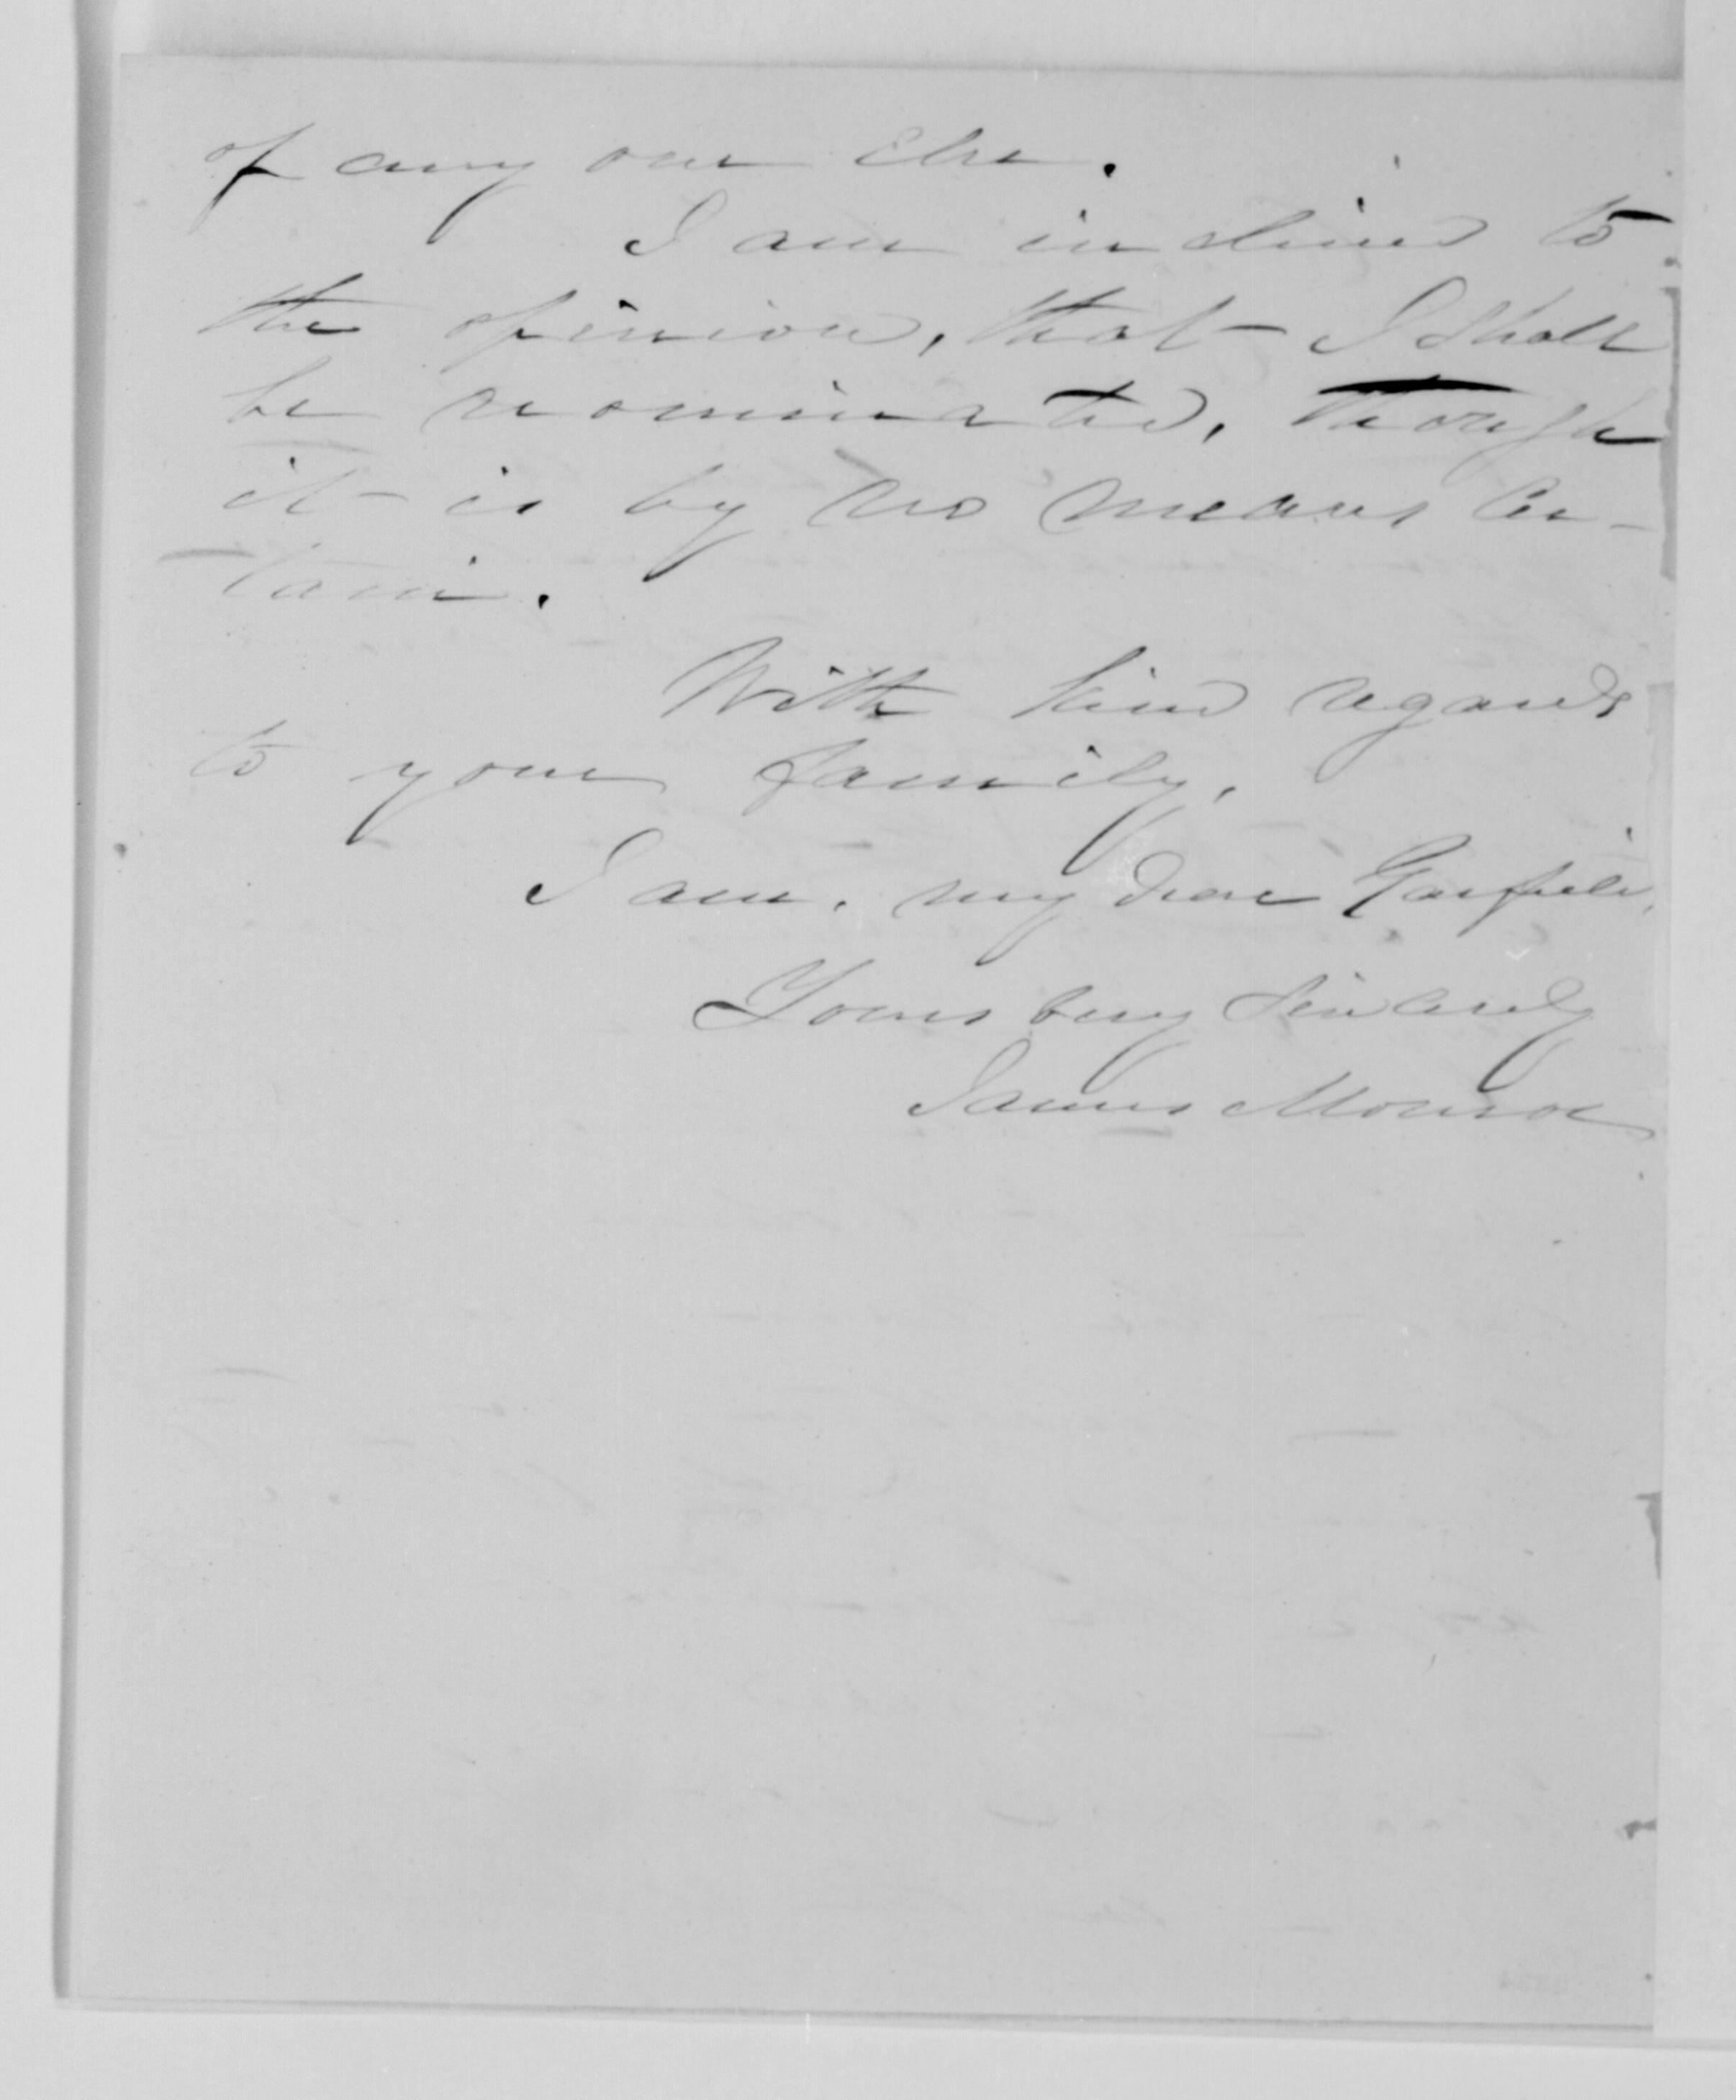 of any one else.
I am inclined to
the opinion, that I shall
be nominated, though
it is by no means cer-
tain.
With kind regards
to your family,
I am, my dear Garfield,
Yours very sincerely
James Monroe